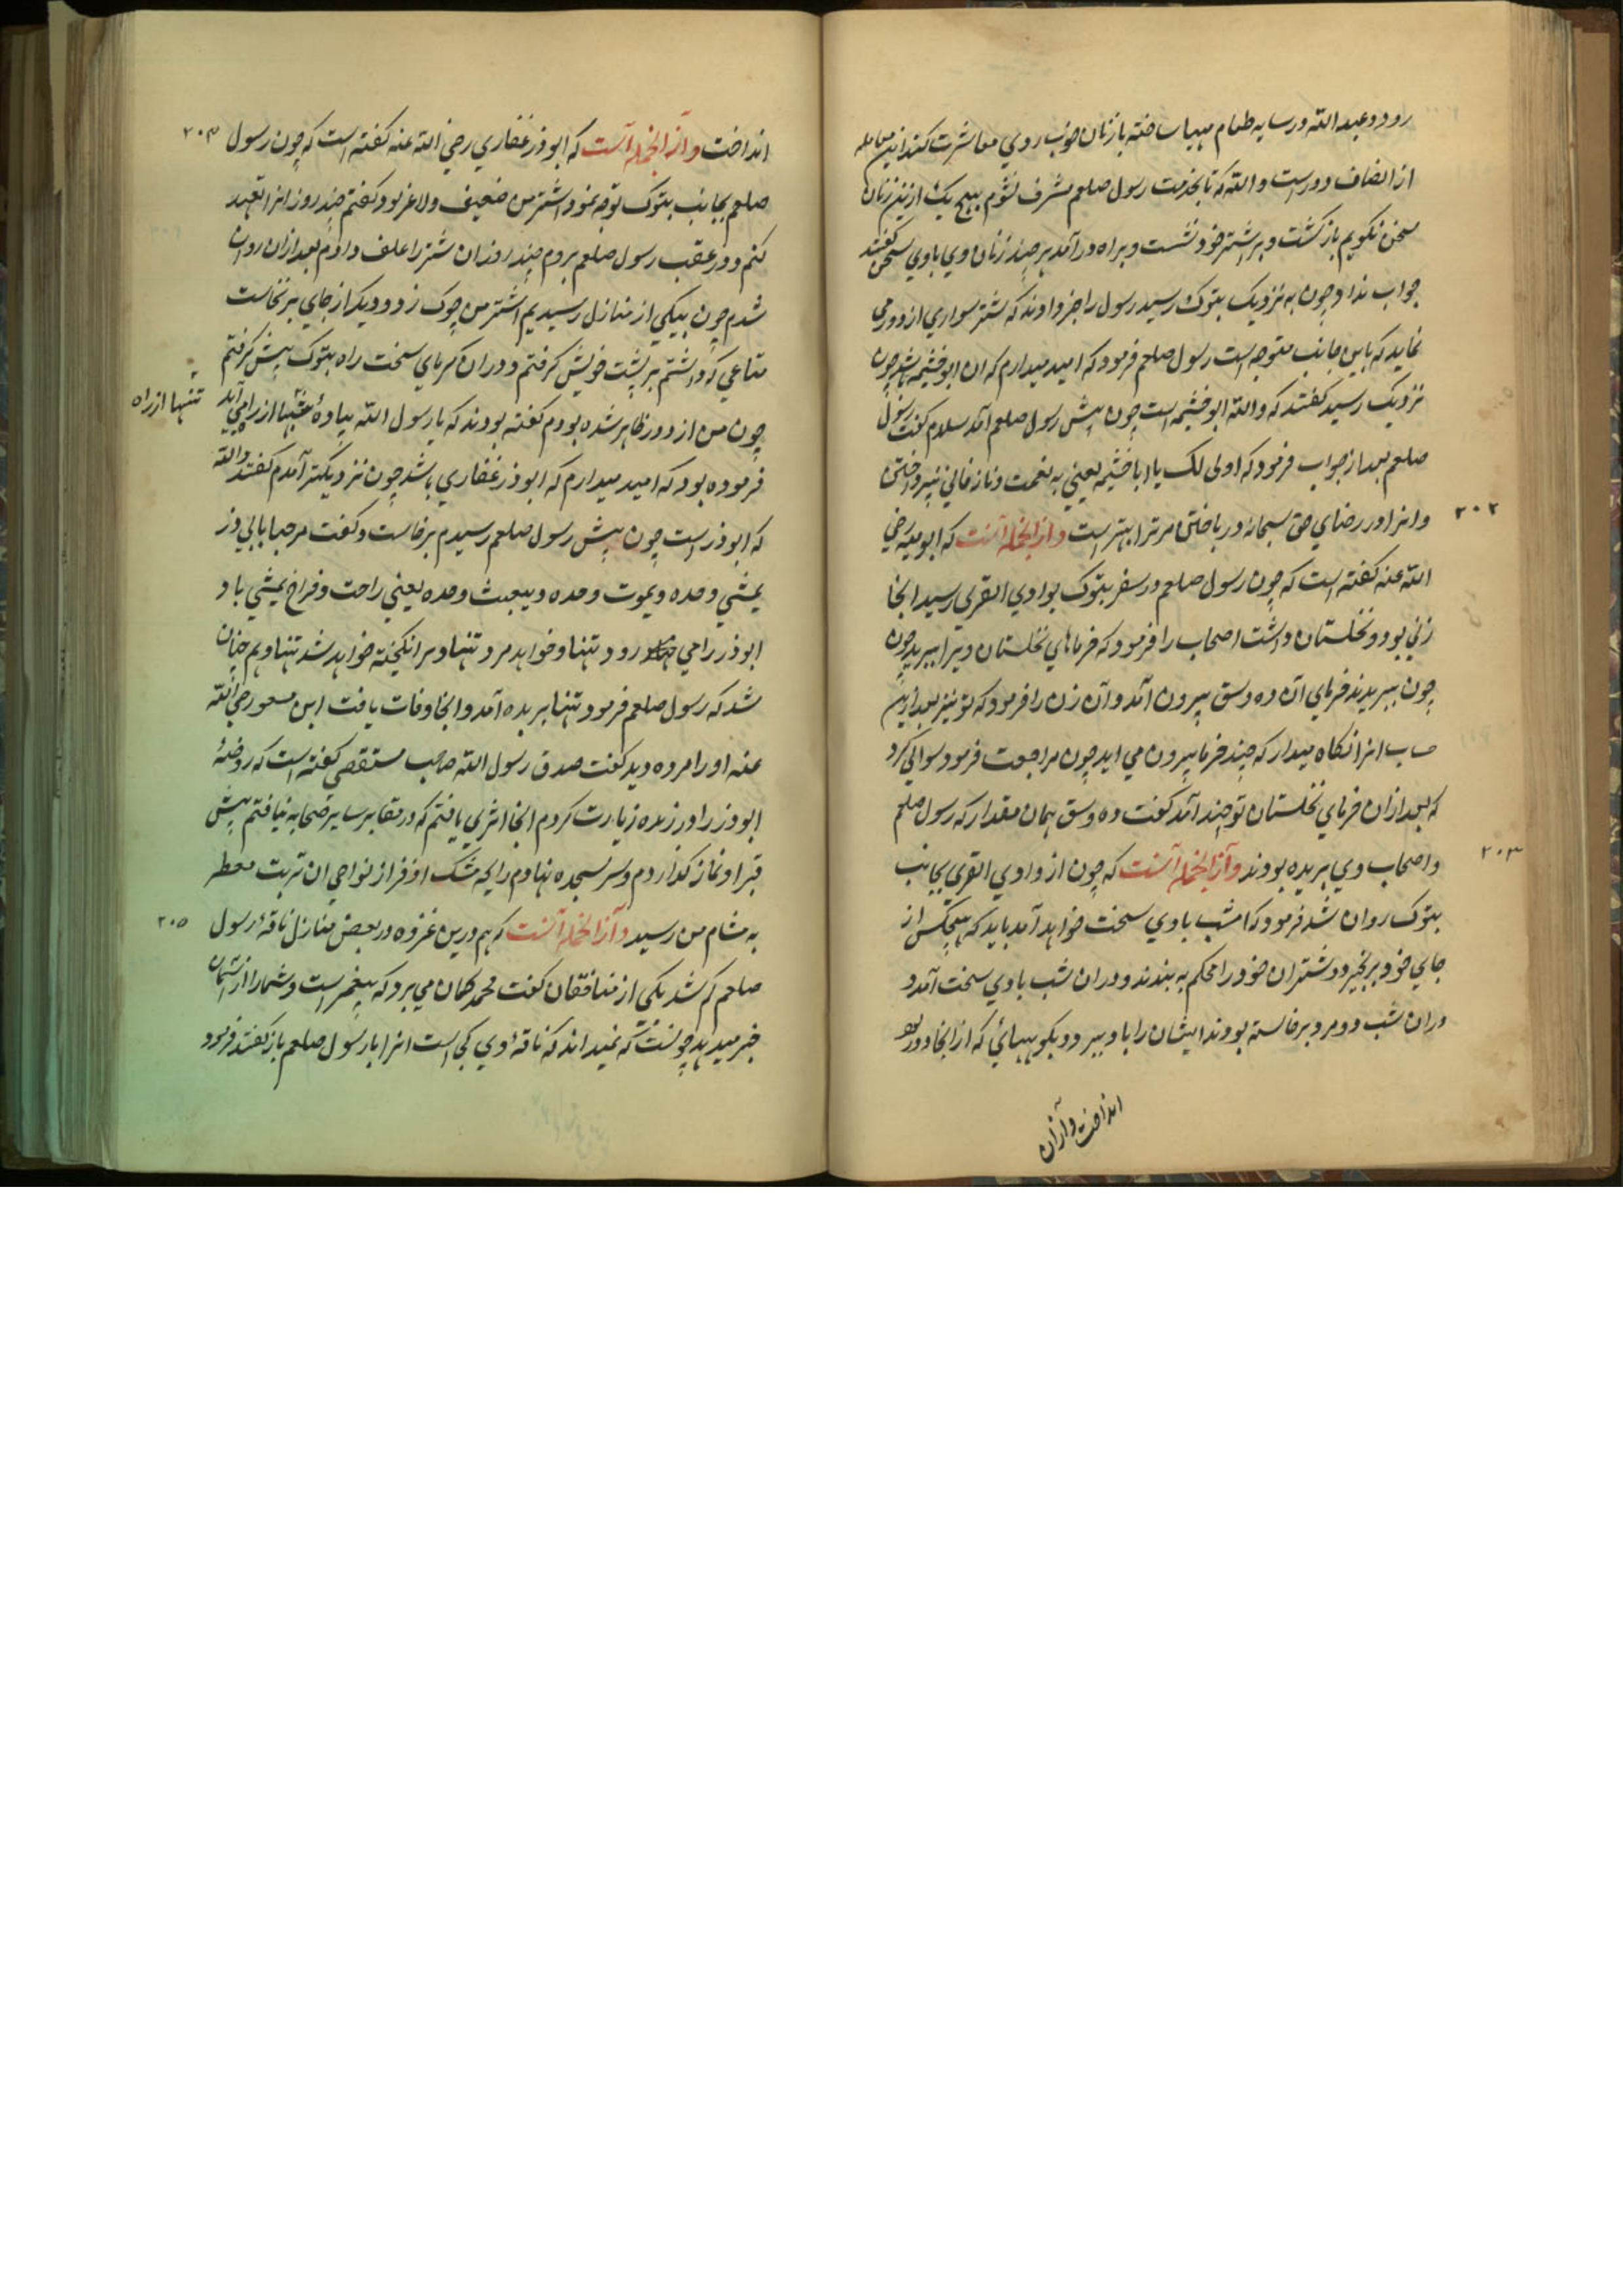 رود و عبد الله در سایه طعام مهیا ساخته با زنان خوب روي معاشرت کند این معامله
از انصاف دور است و الله که تا بخدمت رسول صلعم مشرف نشوم بهیچ یک ازین زنان
سخن نکویم باز کشت و بر اشتر خود نشست و براه در آمد هر چند زنان وي با وي سخن کفتند
جواب نداد چون به نزدیک بتوک رسید رسول را خبر دادند که شتر سواري از دور می
نماید که باین جانب متوجه است رسول صلعم فرمود که امید میدارم که ان ابو خشیمه باشد چون
نزدیک رسید کفتند که والله ابو خشیمه است چون پیش رسول صلعم آمد سلام کفت رسول
صلعم بعد از جواب فرمود که اولی لک یا ابا خشیمه یعني به نعمت و ناز فاني نپرداختن
۲۰۲
وانرا در رضاي حق سبحانه در باختن مر ترا بهتر است و از انجمله آنست که ابو رضي
الله عنه کفته است که چون رسول صلعم در سفر بتوک بوادي القري رسید انجا
زني بود و نخلستان داشت اصحاب را فرمود که خرماهاي نخلستان ویرا ببرید چون
چون ببریدند خرماي آن ده وسق بیرون آمد و آن زن را فرمود که تو نیز بعد ازین
حساب انرا نکاه میدار که چند خرما بیرون مي اید چون مراجعت فرمود سوالي کرد
که بعد از ان خرماي نخلستان تو چند آمد کفت ده وسق همان مقدار که رسول صلعم
۲۰۳
و اصحاب وي بریده بودند و آز انجمله آنست که چون از وادي القري بجانب
بتوک روان شد فرمود که امشب بادي سخت خواهد آمد باید که هیچکس از
جاي خود بر نخیزد و شتران خود را محکم به بندند و در ان شب بادي سخت آمد و
در ان شب دو مرد بر خاسته بودند ایشان را باد ببرد و بکوههائي که از انجا دور بود
انداخت و آزان
۲۰۴
انداخت و آز انجمله آنست که ابو ذر غفاري رضي الله عنه کفته است که چون رسول
صلعم بجانب بتوک توجه نمود اشتر من ضعیف و لاغر بود کفتم چند روز انرا تعهد
کنم و در عقب رسول صلعم بروم چند روز ان شتر را علف دادم بعد از ان روان
شدم چون بیکي از منازل رسیدیم اشتر من چوک زد و دیکر از جاي بر نخاست
متاعي که داشتم بر پشت خویش کرفتم و در ان کرماي سخت راه بتوک پیش کرفتم
چون من از دور ظاهر شده بودم کفته بودند که یا رسول الله پیادهٔ تنها از راه مي آید
تنها از راه
فرموده بود که امید میدارم که ابو ذر غفاري باشد چون نزدیکتر آمدم کفتند والله
که ابو ذر است چون پیش رسول صلعم رسیدم بر خاست و کفت مرحبا بابي ذر
یمشي وحده و یموت وحده و یبعث وحده یعني راحت و فراخ یمشي باد
ابو ذر را مي رود تنها و خواهد مرد تنها و بر انکیخته خواهد شد تنها و هم چنان
شد که رسول صلعم فرمود تنها بربده آمد و انجا وفات یافت ابن مسعود رضي الله
عنه او را مرده دید کفت صدق رسول الله صاحب مستقصي کفته است که روضهٔ
ابو ذر را در زیارت کردم انجا اثري یافتم که در مقابر سایر صحابه نیافتم پیش
قبر او نماز کذاردم و سر بسجده نهادم رایحه مشک اذفر از نواحي ان تربت معطر
۲۰۵
به مشام من رسید و آز انجمله آنست که هم درین غزوه در بعض منازل ناقهٔ رسول
صلعم کم شد یکي از منافقان کفت محمد کمان مي برد که پیغمبر است و شما را از آسمان
خبر میدهد چونست که نمیداند که ناقهٔ وي کجا است انرا با رسول صلعم باز کفتند فرمود